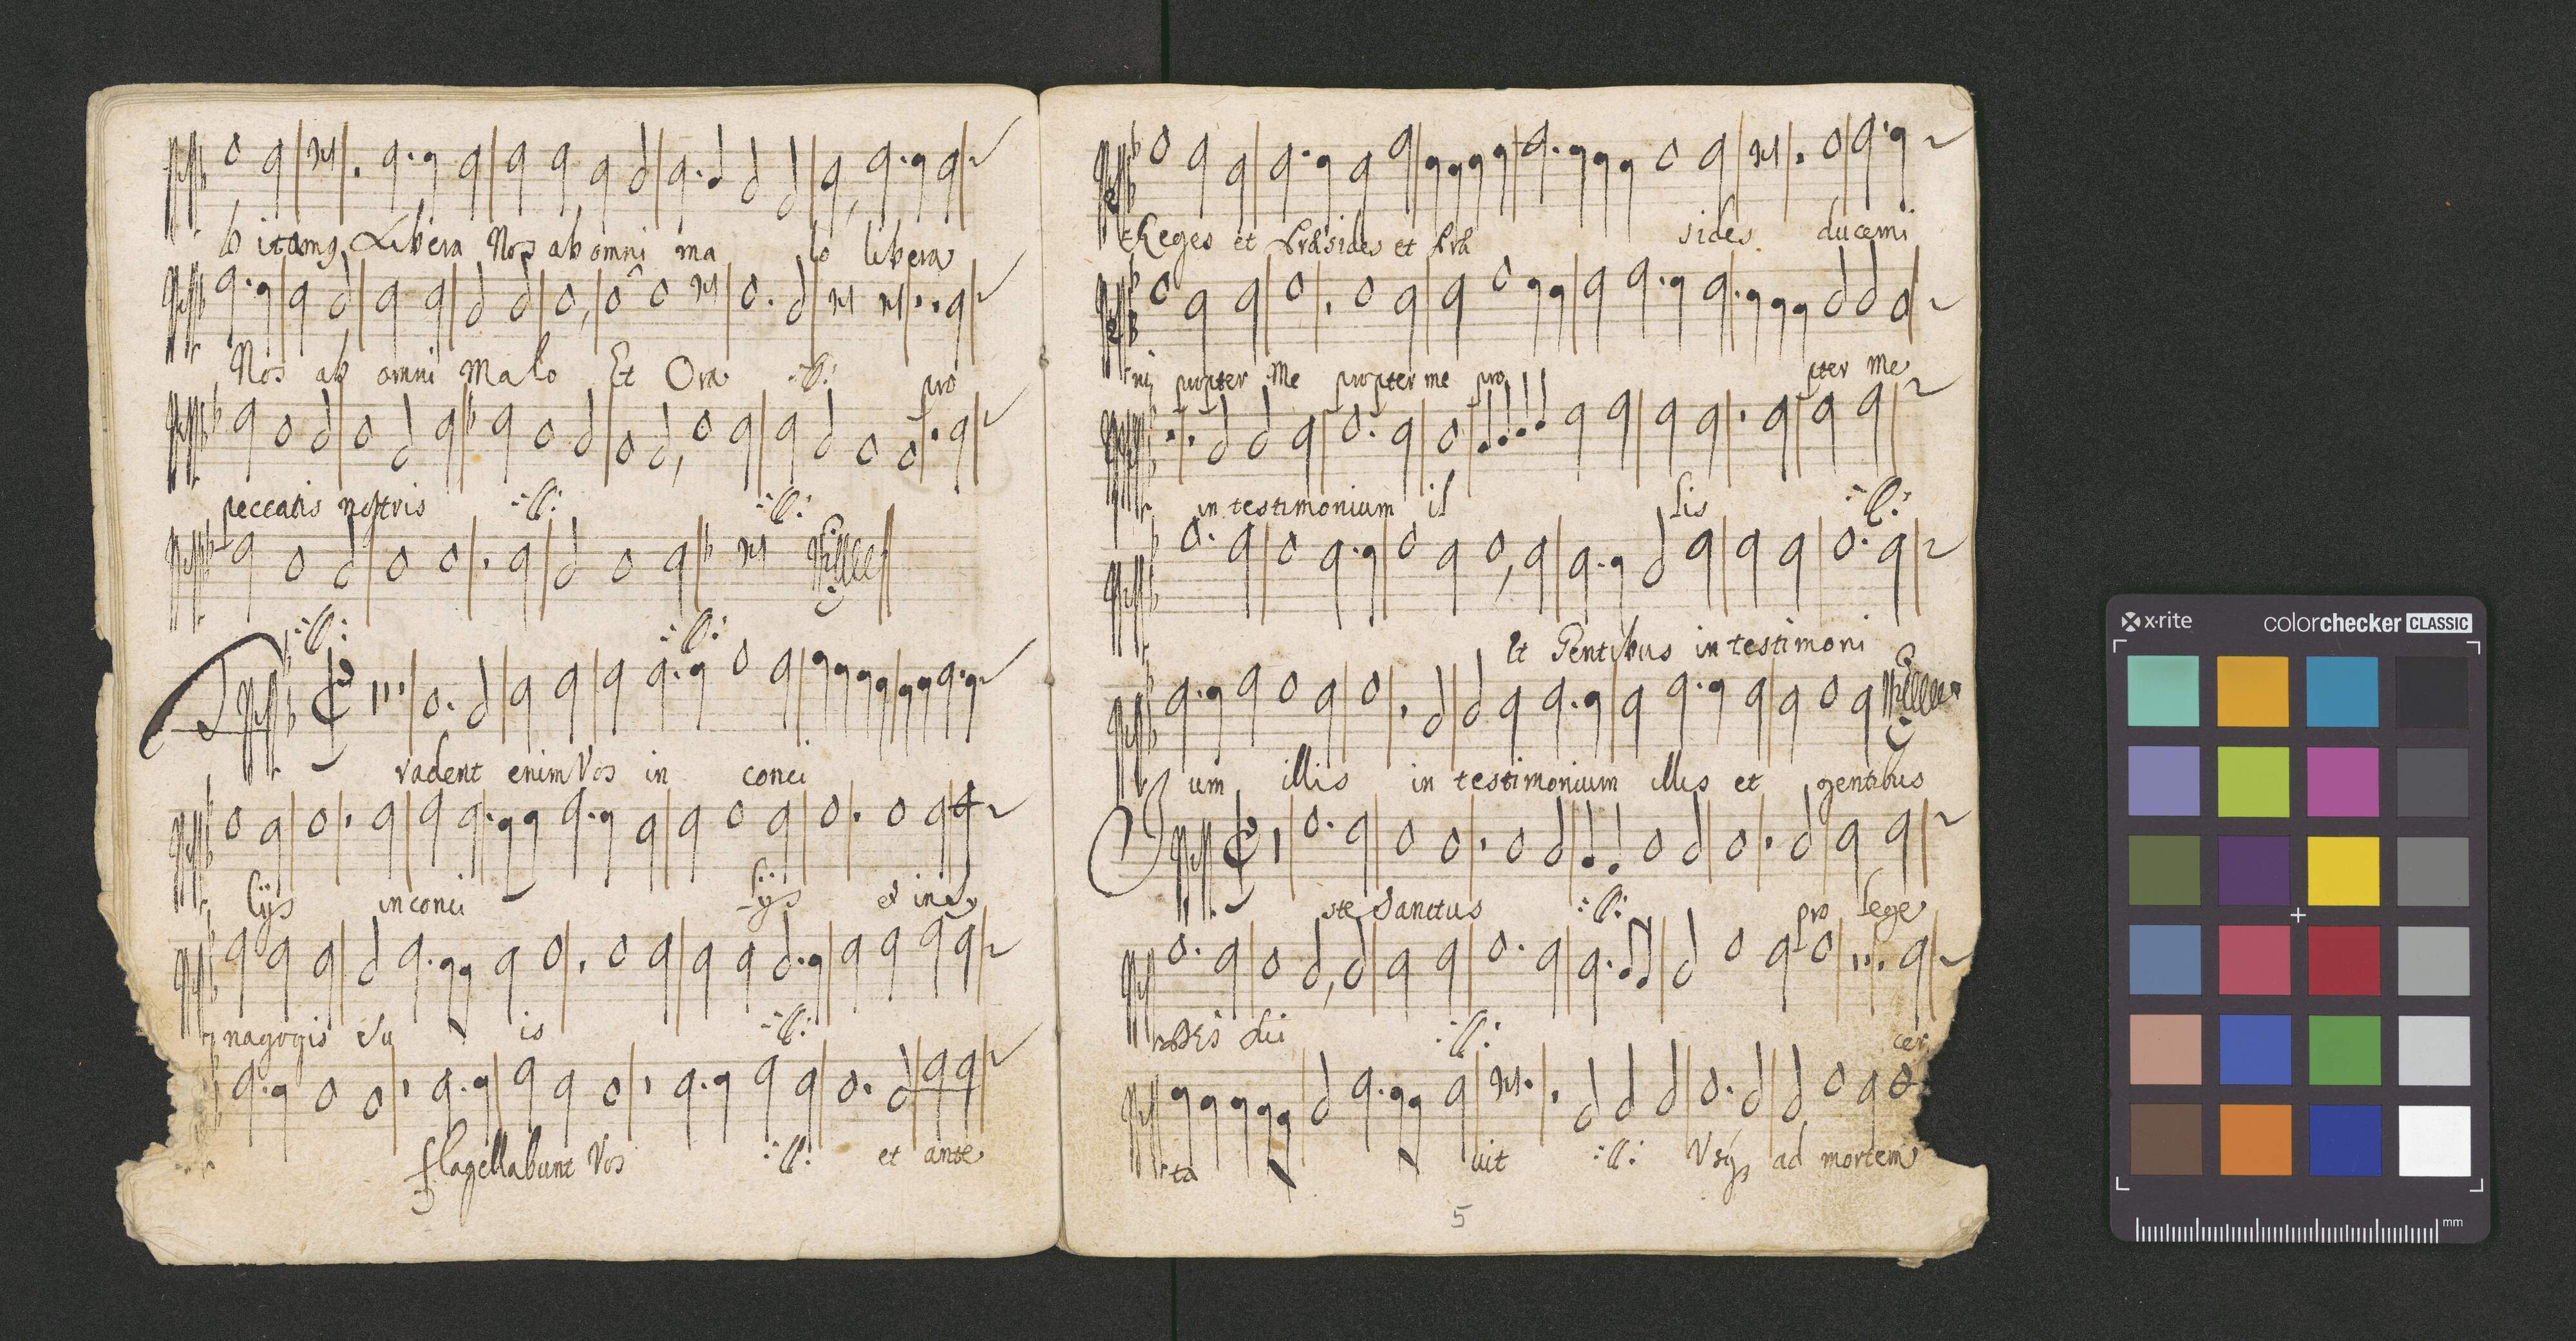 b itamq Libera Nos ab omni ma lo libera
Nos ab omni Malo Et Ora :ll: pro
peccatis nostris :ll: :ll:
:ll: :ll:
T radent enim Vos in conci
lijs in conci lijs et in sy
nagogis su is :ll:
flagellabunt Vos :ll: et ante
et Reges et Præsides et Præ sides ducemi
ni propter Me propter me pro pter Me
in testimonium il lis :ll:
Et Gentibus in testimoni
um illis in testimonium illis et gentibus
I ste Sanctus :ll: pro lege
Dei sui :ll: cer
ta uit :ll: Vsq ad mortem
5
x·rite colorchecker CLASSIC
mm